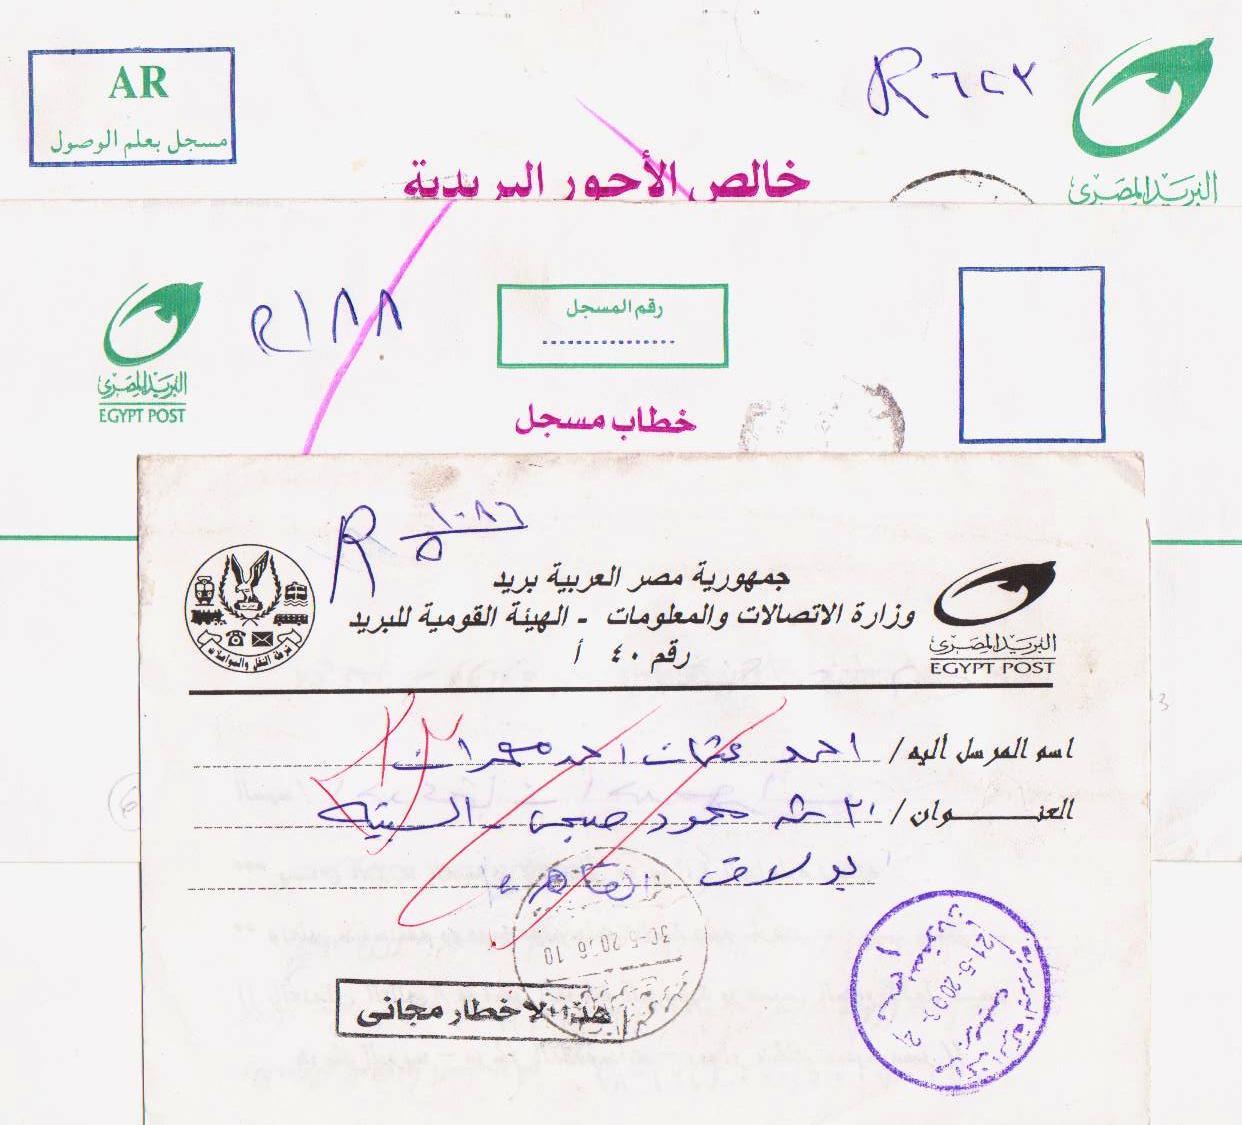 AR
مسجل بعلم الوصول
R ٦٢٢
البريد المصرى
خالص الأجور البريدية
البريد المصرى
EGYPT POST
R ١٨٨
رقم المسجل
خطاب مسجل
R ١٠٨٦
٥
جمهورية مصر العربية بريد
وزارة الاتصالات والمعلومات - الهيئة القومية للبريد
رقم ٤٠ أ
البريد المصرى
EGYPT POST
اسم المرسل اليه / احمد احمد
العنوان / ٢٠ ش محمود - السبتيه
بولاق القاهرة
30-5-2006 10
هذا الاخطار مجانى
21-5-2006